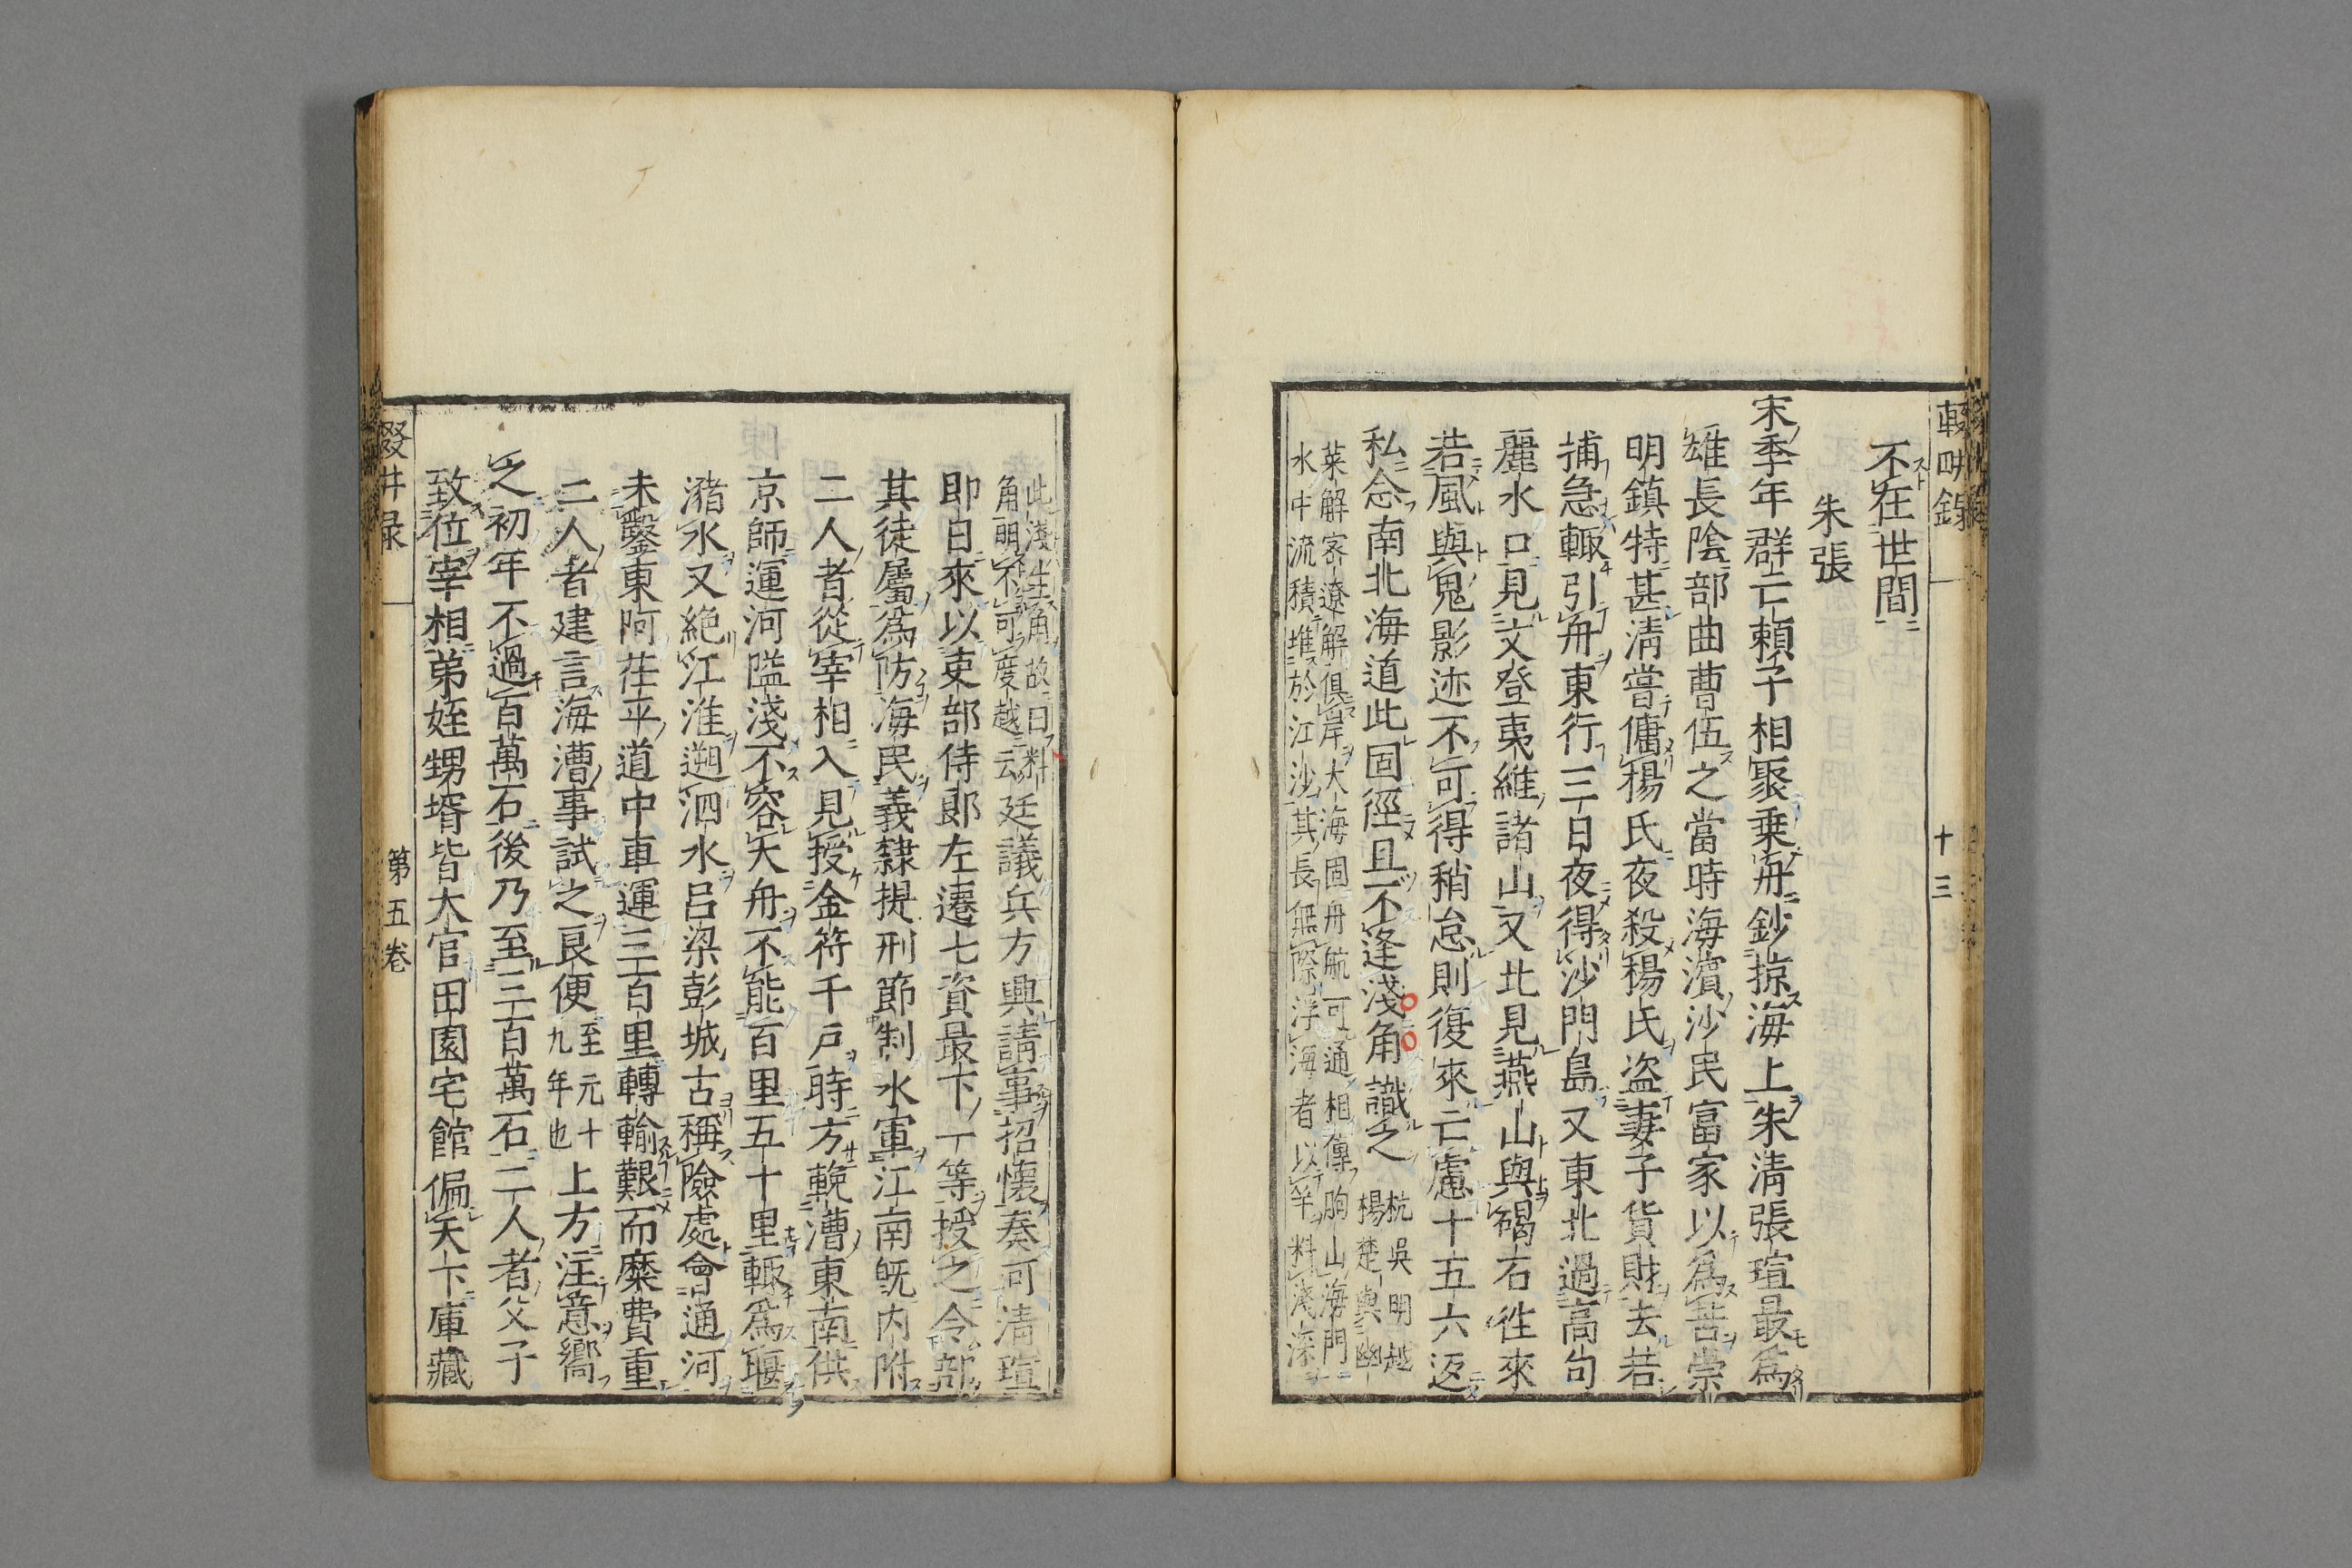 輟畊錄　十三
不在世間
朱張
宋季年群亡賴子相聚乗舟鈔掠海上朱淸張瑄最爲
雄長陰部曲曹伍之當時海濱沙民富家以爲苦崇
明鎮特甚淸嘗傭楊氏夜殺楊氏盗妻子貨財去若
捕急輙引舟東行三日夜得沙門島又東北過高句
麗水口見文登夷維諸山又北見燕山與碣石徃來
若風與鬼影迹不可得稍怠則復來亡慮十五六返
私念南北海道此固徑且不逢淺角識之杭吳明越
楊楚與幽
萊解宻遼解俱岸大海固舟航可通相傳朐山海門
水中流積堆於江沙其長無際浮海者以竿料淺深
此淺生角故曰料
角明不可度越云
廷議兵方興請事招懷奏可淸瑄
即日來以吏部侍郎左遷七資最下一等授之令部
其徒屬爲防海民義隸提刑節制水軍江南旣内附
二人者從宰相入見授金符千戸時方輓漕東南供
京師運河隘淺不容大舟不能百里五十里輙爲堰
潴水又絶江淮遡泗水呂梁彭城古稱險處會通河
未鑿東阿茌平道中車運三百里轉輸艱而糜費重
二人者建言海漕事試之良便至元十
九年也
上方注意嚮
之初年不過百萬石後乃至三百萬石二人者父子
致位宰相弟姪甥壻皆大官田園宅館徧天下庫藏
輟畊錄　第五卷